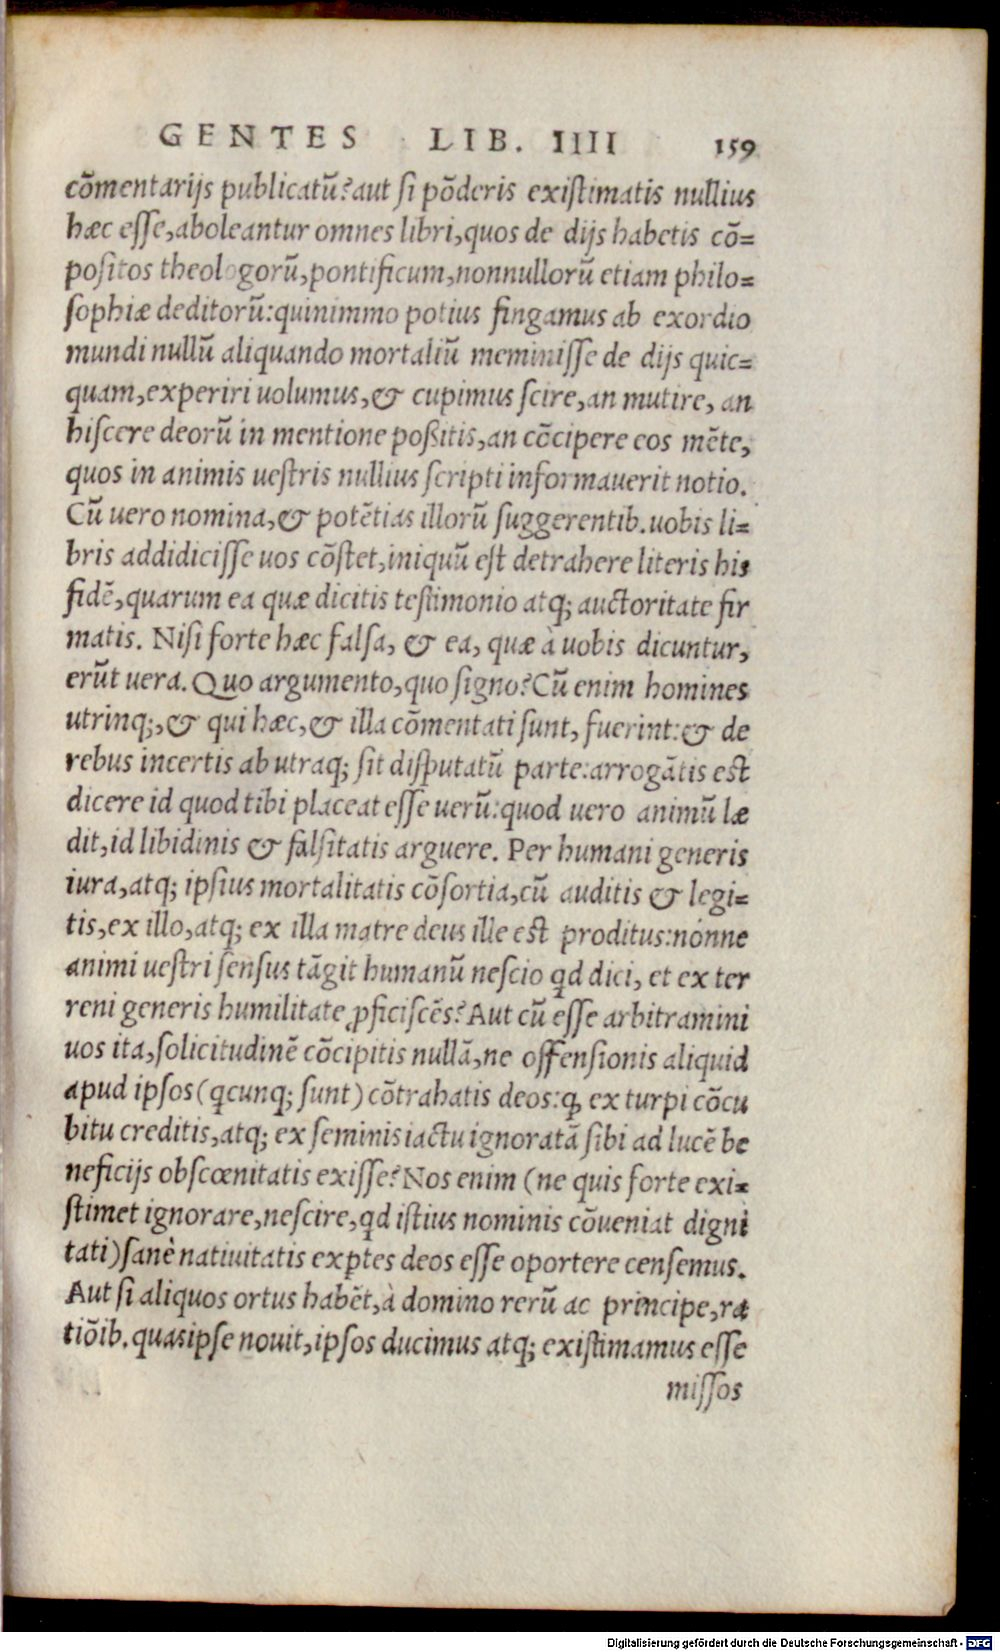 GENTES LIB. IIII 159
cõmentarijs publicatũ? aut si põderis existimatis nullius
hæc esse, aboleantur omnes libri, quos de dijs habetis cõ=
positos theologorũ, pontificum, nonnullorũ etiam philo=
sophiæ deditorũ: quinimmo potius fingamus ab exordio
mundi nullũ aliquando mortaliũ meminisse de dijs quic=
quam, experiri uolumus, & cupimus scire, an mutire, an
hiscere deorũ in mentione poßitis, an cõcipere eos mẽte,
quos in animis uestris nullius scripti informauerit notio.
Cũ uero nomina, & potẽtias illorũ suggerentib. uobis li=
bris addidicisse uos cõstet, iniquũ est detrahere literis his
fidẽ, quarum ea quæ dicitis testimonio atq; auctoritate fir
matis. Nisi forte hæc falsa, & ea, quæ à uobis dicuntur,
erũt uera. Quo argumento, quo signo? Cũ enim homines
utrinq;, & qui hæc, & illa cõmentati sunt, fuerint: & de
rebus incertis ab utraq; sit disputatũ parte: arrogãtis est
dicere id quod tibi placeat esse uerũ: quod uero animũ læ
dit, id libidinis & falsitatis arguere. Per humani generis
iura, atq; ipsius mortalitatis cõsortia, cũ auditis & legi=
tis, ex illo, atq; ex illa matre deus ille est proditus: nónne
animi uestri sensus tãgit humanũ nescio qd dici, et ex ter
reni generis humilitate ꝓficiscẽs? Aut cũ esse arbitramini
uos ita, solicitudinẽ cõcipitis nullã, ne offensionis aliquid
apud ipsos (qcunq; sunt) cõtrahatis deos: ꝙ ex turpi cõcu
bitu creditis, atq; ex seminis iactu ignoratã sibi ad lucẽ be
neficijs obscœnitatis exisse? Nos enim (ne quis forte exi=
stimet ignorare, nescire, qd istius nominis cõueniat digni
tati) sanè natiuitatis exꝑtes deos esse oportere censemus.
Aut si aliquos ortus habẽt, à domino rerũ ac principe, ra
tiõib. quas ipse nouit, ipsos ducimus atq; existimamus esse
missos
Digitalisierung gefördert durch die Deutsche Forschungsgemeinschaft - DFG